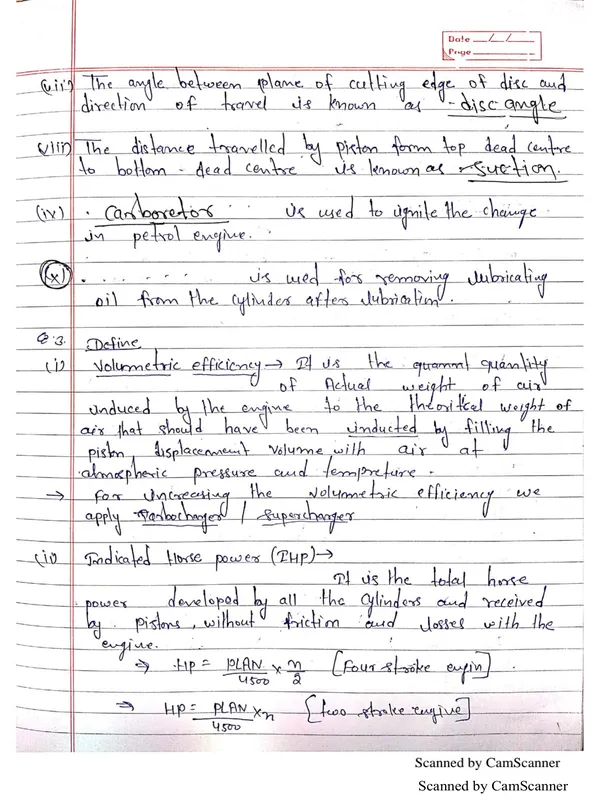 Date __/__/__
Page
(vii) The angle between plane of cutting edge of disc and
direction of travel is known as - disc angle
(viii) The distance travelled by piston form top dead centre
to bottom - dead centre is known as suction.
(iv) . Carboretor is used to ignite the change
in petrol engine.
(x) . . . . . . . is used for removing lubricating
oil from the cylinder after lubrication.
Q.3. Define
(i) Volumetric efficiency → It is the quannl quantity
of Actual weight of air
induced by the engine to the theoritcal weight of
air that should have been inducted by filling the
piston, displacement volume with air at
atmospheric pressure and tempreture.
→ For increasing the volumetric efficiency we
apply Tarbocharger / Supercharger
(ii) Indicated Horse power (IHP) →
It is the total horse
power developed by all the cylinders and received
by pistons, without friction and losses with the
engine.
⇒ HP = PLAN/4500 × n/2 [Four stroke engin]
⇒ HP = PLAN/4500 × n [two stroke engine]
Scanned by CamScanner
Scanned by CamScanner